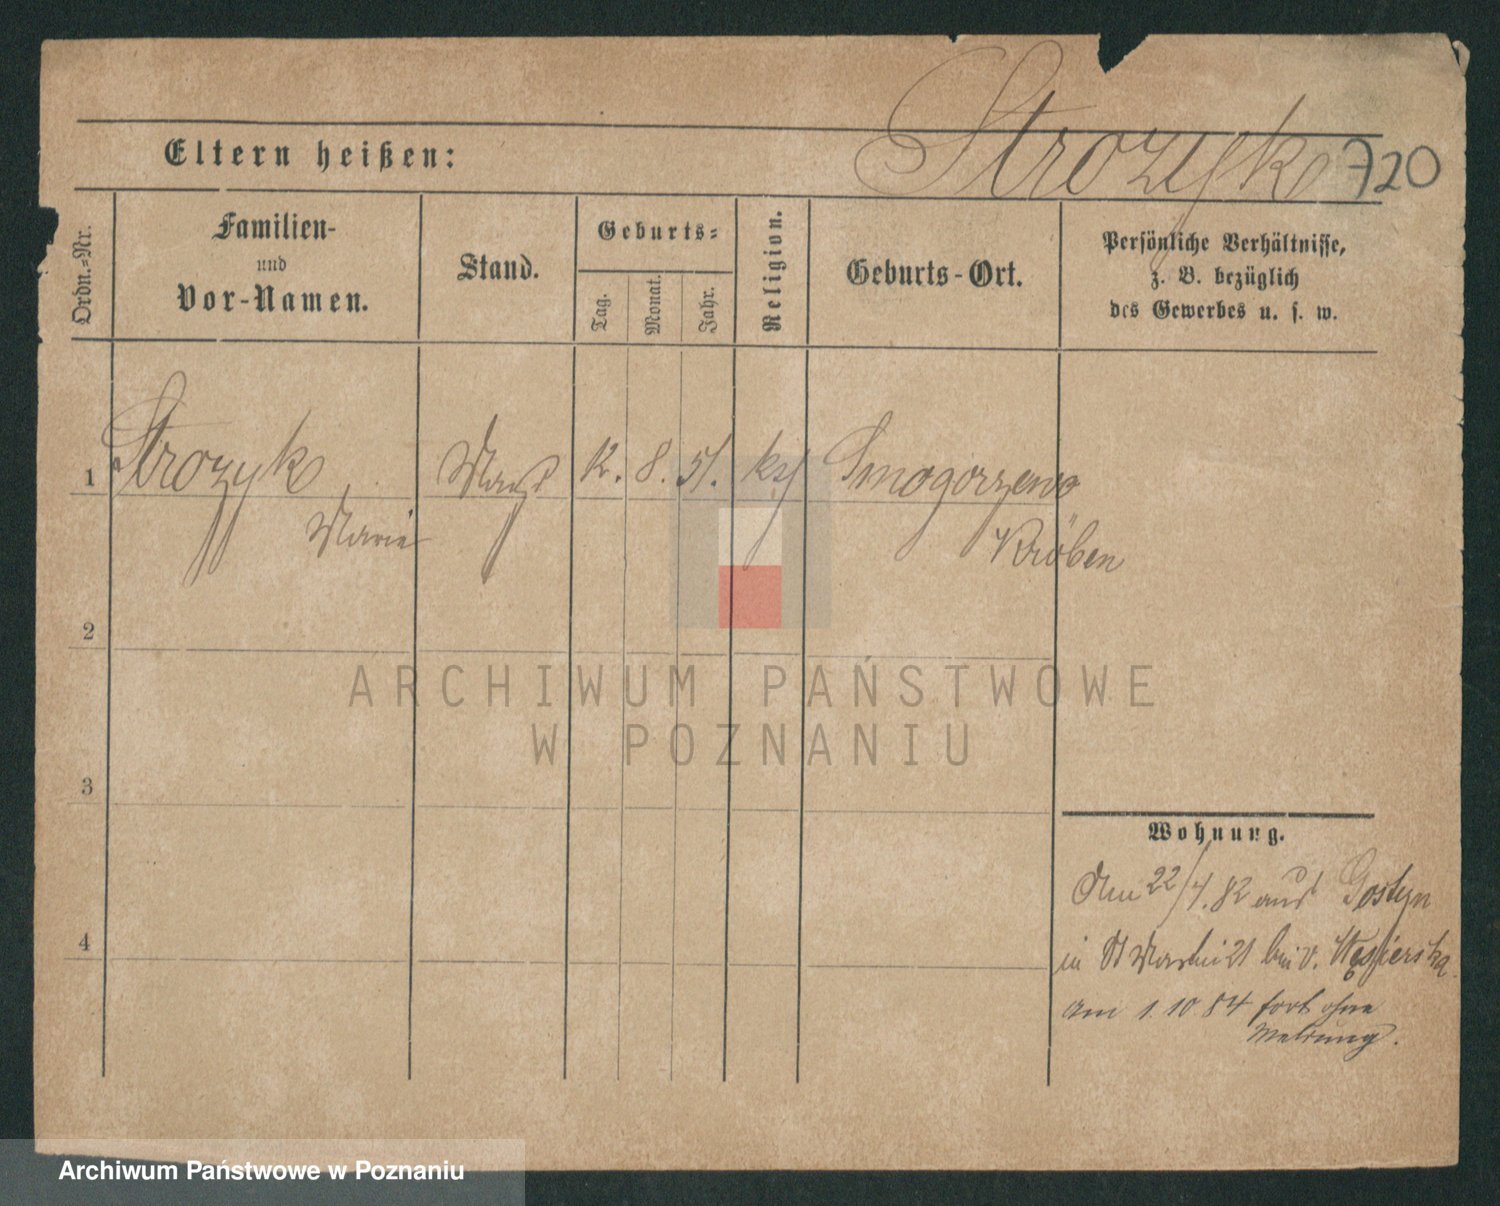 Strozyk 720
Eltern heißen:
Ordn.-Nr.
Familien-
und
Vor-Namen.
Stand.
Geburts-
Tag.
Monat.
Jahr.
Religion.
Geburts-Ort.
Persönliche Verhältnisse,
z. B. bezüglich
des Gewerbes u. s. w.
1 Strozyk Magd 12. 8. 51. kth Smogorzewo
Marie Kröben
2
3
4
Wohnung.
Am 22/4. 82 aus Gostyn
in St Martin 21 bei v. Węsierska.
am 1. 10 84 fort ohne
Meldung.
ARCHIWUM PAŃSTWOWE
W POZNANIU
Archiwum Państwowe w Poznaniu